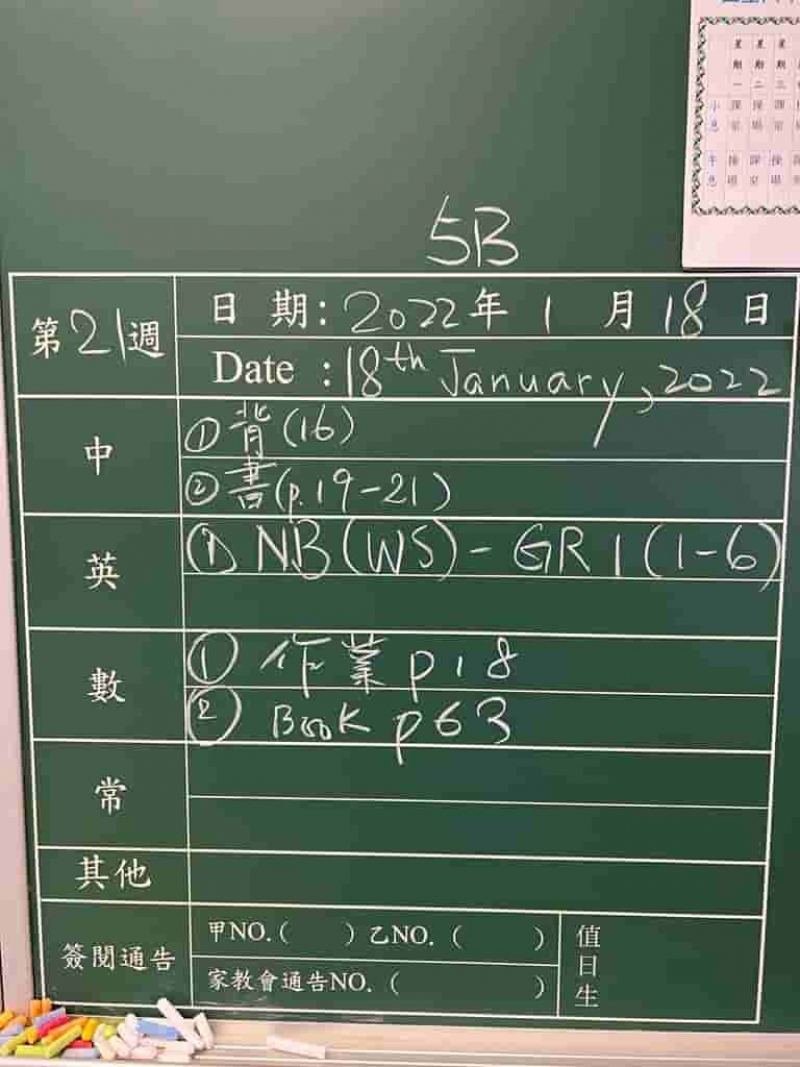 星期一 星期二 星期三
小息
5B
第21週
日期：2022年1月18日
Date : 18th January, 2022
中
①背(16)
②書(p.19-21)
英
①NB(WS)- GR1(1-6)
數
①作業p18
②Book p63
常
其他
簽閱通告
甲NO.( ) 乙NO. ( )
家教會通告NO. ( )
值日生